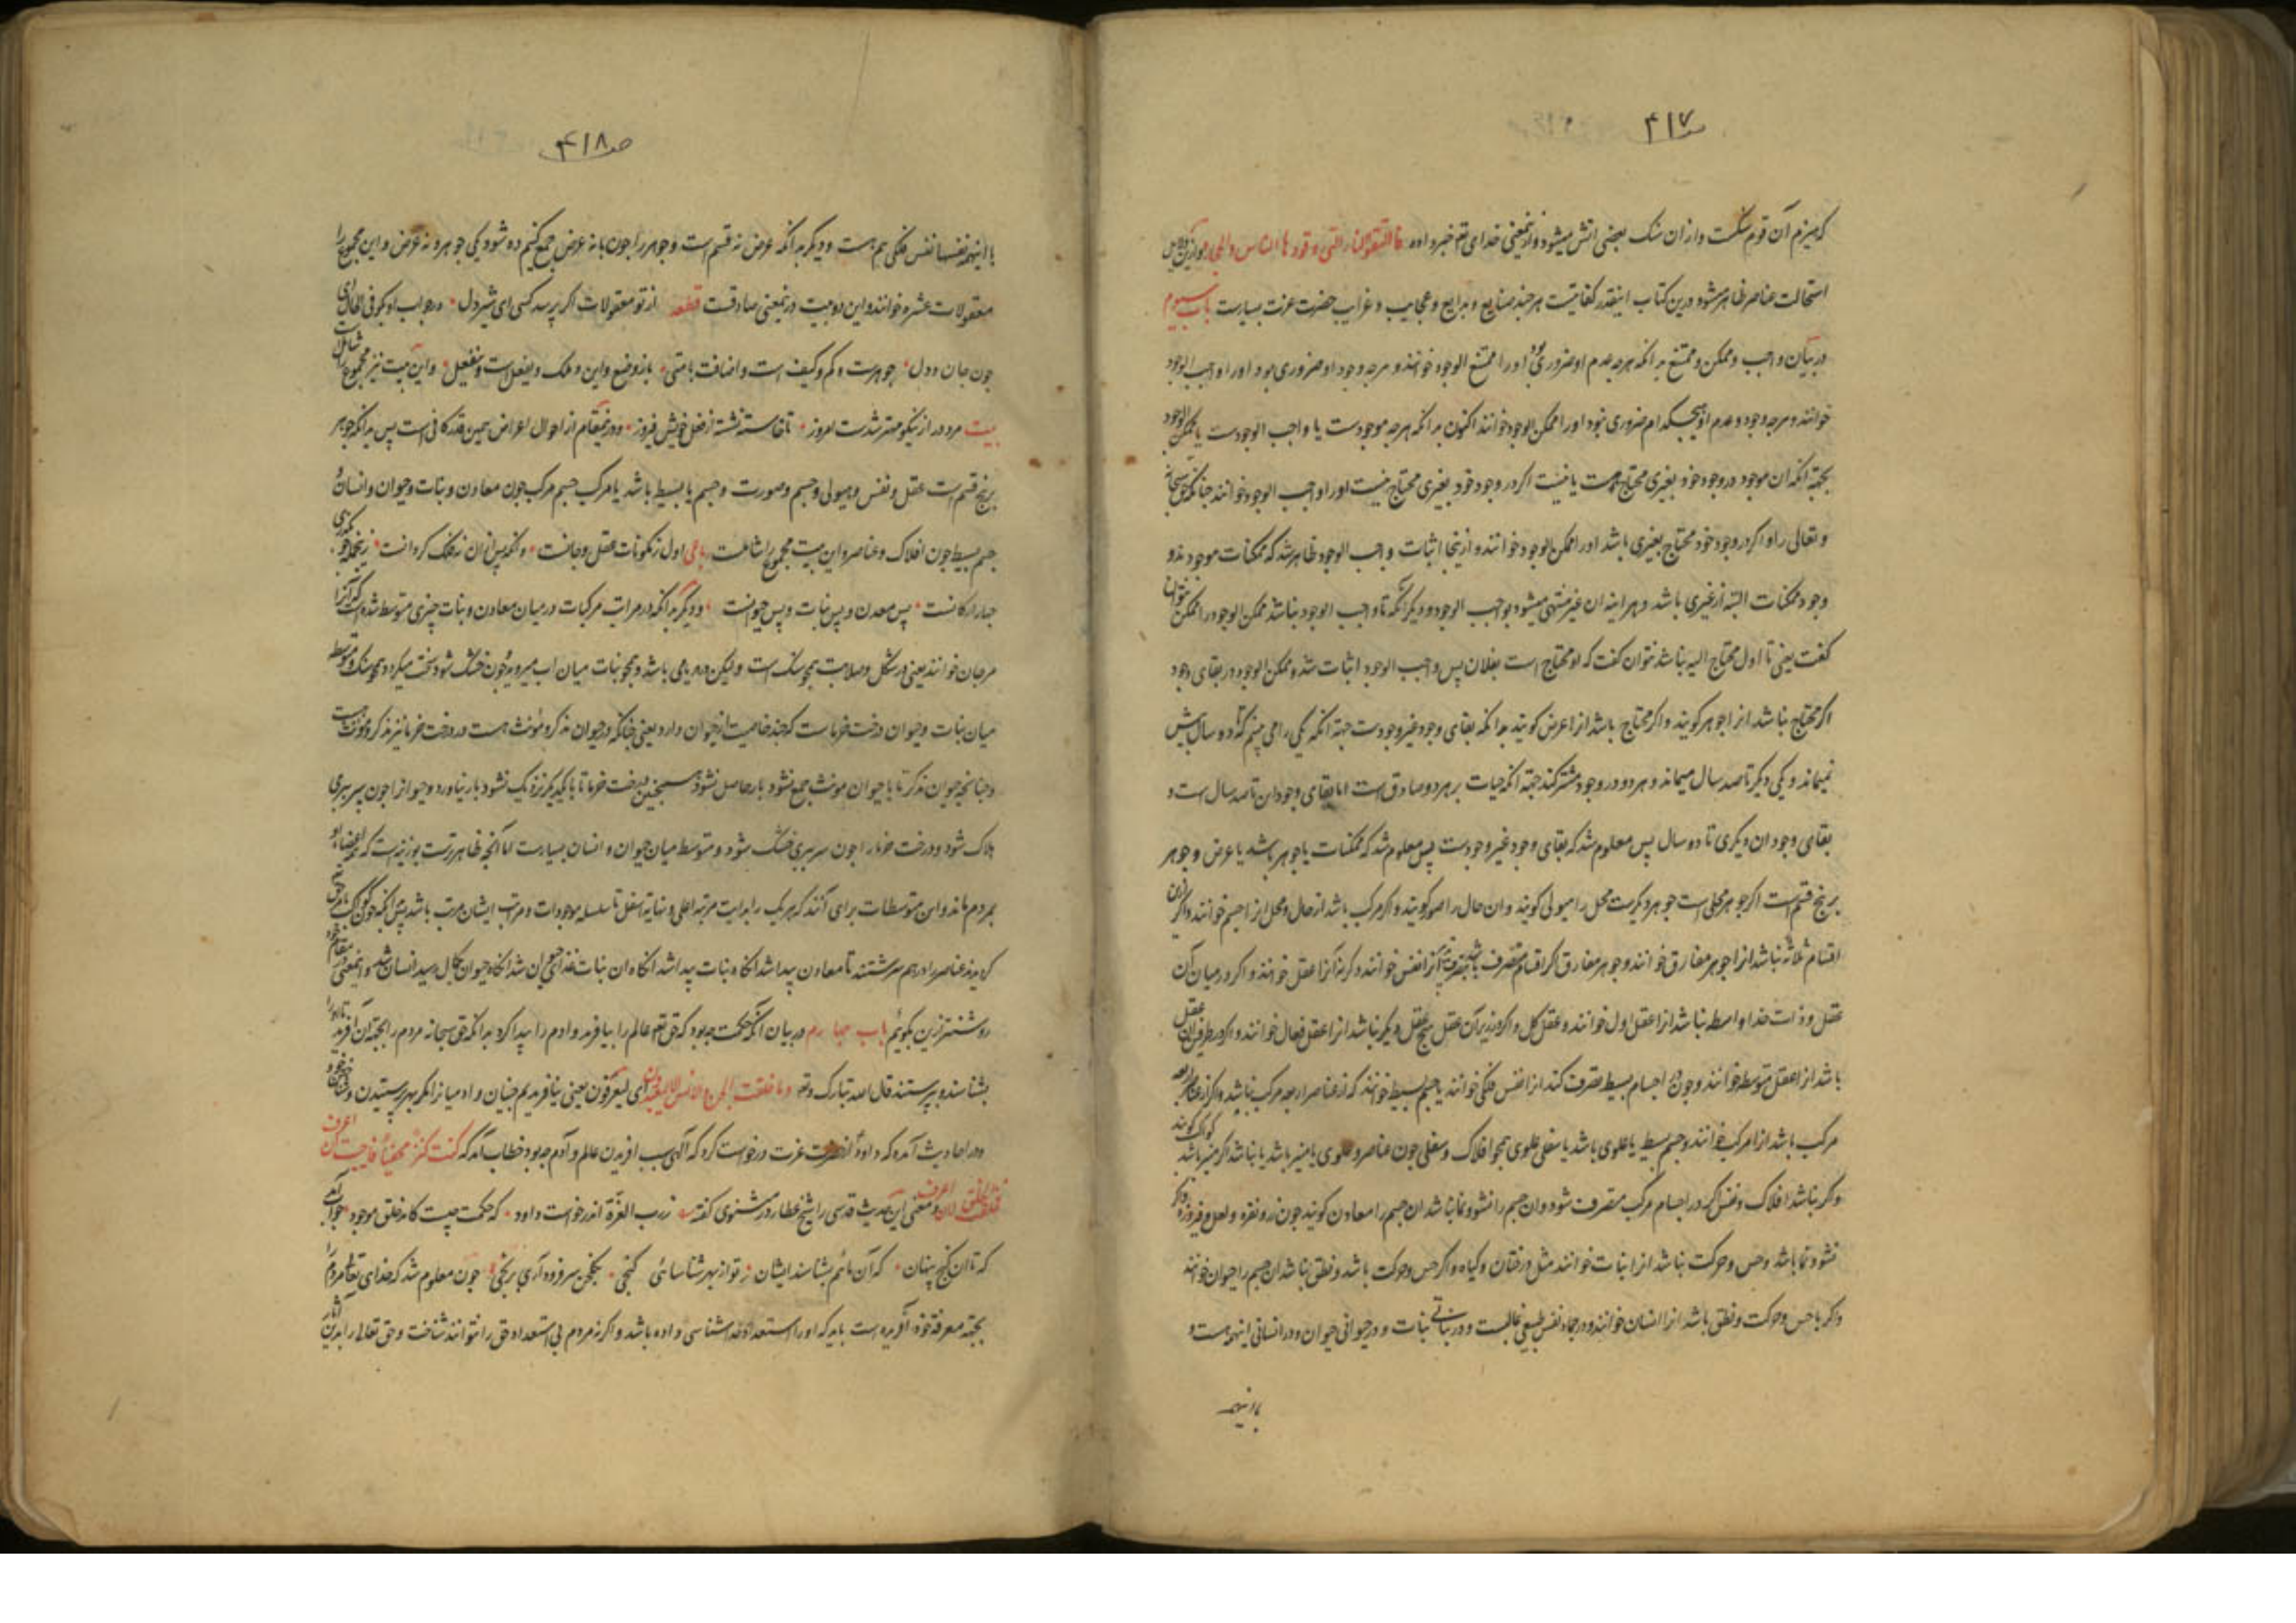 ص۴۱۷
که هیزم آن قوم سنگست و از ان سنک بعضی اتش میشود و ازینمعنی خدای تع خبر داده فاتقوا النار التی وقودها الناس والحجاره و ازین
استحالت عناصر ظاهر میشود و درین کتاب اینقدر کفایتست هر چند صنایع و بدایع و عجایب و غرایب حضرت عزت بسیارست باب سیوم
در بیان واجب و ممکن و ممتنع بدانکه هرچه عدم او ضروری بود اورا ممتنع الوجود خوانند و هرچه وجود او ضروری بود اورا واجب الوجود
خوانند و هرچه وجود و عدم او هیچکدام ضروری نبود اورا ممکن الوجود خوانند اکنون بدانکه هرچه موجودست یا واجب الوجودست یا ممکن الوجود
بجهة انکه ان موجود در وجود خود بغیری محتاج هست یا نیست اکر در وجود خود بغیری محتاج نیست اورا واجب الوجود خوانند چنانکه حق سبحانه
و تعالی را و اکر در وجود خود محتاج بغیری باشد اورا ممکن الوجود خوانند و ازینجا اثبات واجب الوجود ظاهر شد که ممکنات موجودند و
وجود ممکنات البته از غیری باشد و هراینه ان غیر منتهی میشود بواجب الوجود و دیکر آنکه تا واجب الوجود نباشد ممکن الوجود را ممکن نتوان
کفت یعنی تا اول محتاج الیه نباشد نتوان کفت که او محتاج است بفلان پس واجب الوجود اثبات شد و ممکن الوجود در بقای وجود
اکر محتاج نباشد انرا جوهر کویند و اکر محتاج باشد انرا عرض کویند بدانکه بقای وجود غیر وجودست جهة انکه یکی را می بینم که تا ده سال بیش
نمیماند و یکی دیکر تا صد سال میماند و هر دو در وجود مشترکند جهة انکه حیات بر هر دو صادق است اما بقای وجود ان تا صد سال است و
بقای وجود ان دیکری تا ده سال پس معلوم شد که بقای وجود غیر وجودست پس معلوم شد که ممکنات یا جوهر باشد یا عرض و جوهر
بر پنج قسم است اکر جوهر محلی است جوهر دیکرست محل را هیولی کویند و ان حال را صورت کویند و اکر مرکب باشد از حال و محل انرا جسم خوانند و اکر ازین
اقسام ثلاثه نباشد انرا جوهر مفارق خوانند و جوهر مفارق اکر آنرا نفس خوانند و کرنه آنرا عقل خوانند و اکر در میان آن
عقل و ذات خدا واسطه نباشد انرا عقل اول خوانند و عقل کل و اکر در زیر آن عقل هیچ عقل دیکر نباشد انرا عقل فعال خوانند و اکر در طرفین ان عقل
باشد انرا عقل متوسط خوانند و چون در اجسام بسیط تصرف کند انرا نفس فلکی خوانند یا جسم بسیط خوانند که از عناصر اربعه مرکب نباشد و اکر از عناصر اربعه
مرکب باشد انرا مرکب خوانند و جسم بسیط یا علوی باشد یا سفلی علوی همچو افلاک و سفلی چون عناصر و علوی یا منیر باشد یا نباشد اکر منیر باشد کواکب کویند
و اکر نباشد افلاک و نفس اکر در اجسام مرکب متصرف شود و ان جسم را نشو و نما نباشد ان جسم را معادن کویند چون زر و نقره و لعل و فیروزه و اکر
نشو و نما باشد و حس و حرکت نباشد انرا نبات خوانند مثل درختان و کیاه و اکر حس و حرکت باشد و نطق نباشد ان جسم را حیوان خوانند
و اکر با حس و حرکت و نطق باشد انرا انسان خوانند و در جماد نفس طبیعی غالبست و در نباتی نبات و در حیوانی حیوان و در انسانی اینهمه هست و
با اینهمه
ص۴۱۸
با اینهمه نفسها نفس فلکی هم هست و دیکر بدانکه عرض نه قسم است و جوهر را چون با نه عرض جمع کنیم ده شود یکی جوهر و نه عرض و این مجموع را
معقولات عشره خوانند و این دو بیت درینمعنی صادقست قطعه از تو معقولات اکر پرسد کسی ای شیردل در جواب او بکو فی الحال ای
چون جان و دل جوهرست و کم و کیف است و اضافت با متی باز وضع و این و ملک و یفعل است و ینفعل و این بیت نیز مجموع را شاملست
بیت مرد دراز نیکو مهتر شدست امروز تا خاسته نشته از فعل خویش فیروز و درینمقام از احوال اعراض همین قدر کافی است پس بدانکه جوهر
بر پنج قسم است عقل و نفس و هیولی و جسم و صورت و جسم یا بسیط باشد یا مرکب جسم مرکب چون معادن و نبات و حیوان و انسان و
جسم بسیط چون افلاک و عناصر و این بیت مجموع را شاملست اول ز مکونات عقل و جانست وانکه پس از ان نه فلک کردانست زینجمله چو بکذری
چهار ارکانست پس معدن و پس نبات و پس حیوانست و دیکر بدانکه در مراتب مرکبات در میان معادن و نبات چیزی متوسط شده است که آنرا
مرجان خوانند یعنی در شکل و صلابت همچو سنک است و لیکن در دریا می باشد و همچو نبات میان اب میروید چون خشک شود سخت میکردد همچو سنک و متوسط
میان نبات و حیوان درخت خرماست که چند خاصیت از حیوان دارد یعنی چنانکه در حیوان مذکر و مؤنث هست در درخت خرما نیز مذکر و مونث هست
و چنانچه حیوان مذکر تا با حیوان مونث جمع نشود بار حاصل نشود همچنین درخت خرما تا با یکدیکر نزدیک نشود بار نیاورد و حیوانرا چون سر ببری
هلاک شود و درخت خرما را چون سر ببری خشک شود و متوسط میان حیوان و انسان بسیارست اما آنچه ظاهرترست بوزینه است که همه اعضاء او
بمردم ماند و این متوسطات برای آنند که هر یک را بدایت مرتبه اعلی و نهایة اسفل تا سلسله موجودات و مراتب ایشان مرتب باشد
عناصر را در هم سرشتند تا معادن پیدا شد انکاه نبات پیدا شد انکاه ان نبات غذای حیوان شد انکاه حیوان بکمال رسید انسان شد و اینمعنی
روشنتر ازین بکوئیم باب چهارم در بیان آنکه حکمت چه بود که حق تع عالم را بیافرید و ادم را پیدا کرد بدانکه حق سبحانه مردم را بجهة آن افرید تا او را
بشناسند و بپرستند قال الله تبارک و تع و ما خلقت الجن و الانس الا لیعبدون ای لیعرفون یعنی نیافریدیم جنیان و ادمیانرا مکر بهر پرستیدن و
و در احادیث آمده که داود از حضرت عزت درخواست کرد که الهی سبب افریدن عالم و آدم چه بود خطاب آمد که کنت کنزا مخفیا فاحببت ان اعرف
فخلقت الخلق لان اعرف و معنی این حدیث قدسی را شیخ عطار در مثنوی کفته ز رب العزة اندر خواست داود که حکمت چیست کامد خلق موجود جواب آمد
که تا ان کنج پنهان که آن مائیم بشناسند ایشان تو از بهر شناسائی کنجی چون معلوم شد که خدای تعالی مردم را
بجهة معرفة خود آفریده است باید که اورا استعداد خداشناسی داده باشد و اکر نه مردم بی استعداد حق را نتوانند شناخت و حق تعالی را